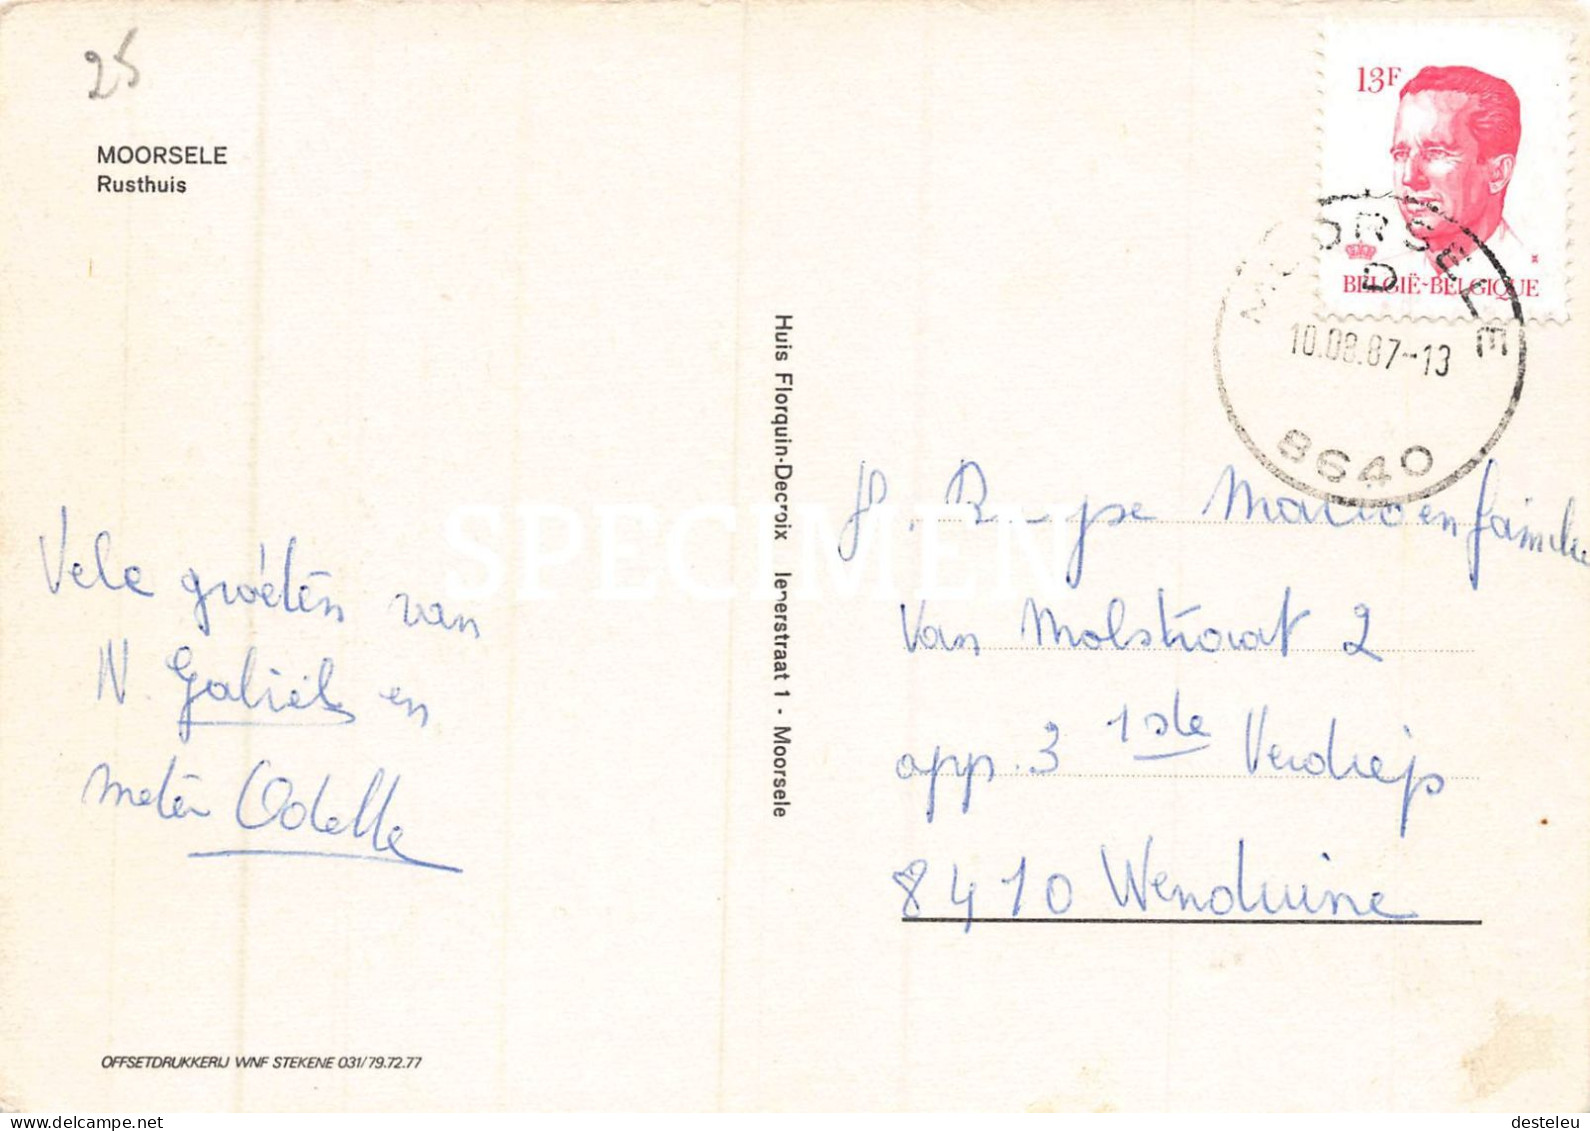 25
MOORSELE
Rusthuis
13F
BELGIË-BELGIQUE
MOORSELE
D
10.08.87-13
8640
Vele groeten van
N. Gabriël en
meter Odette
Huis Florquin-Decroix Ieperstraat 1 - Moorsele
Mario en familie
Van Molstraat 2
app. 3 1ste Verdiep
8410 Wenduine
SPECIMEN
OFFSETDRUKKERIJ WNF STEKENE 031/79.72.77
delcampe.net
desteleu